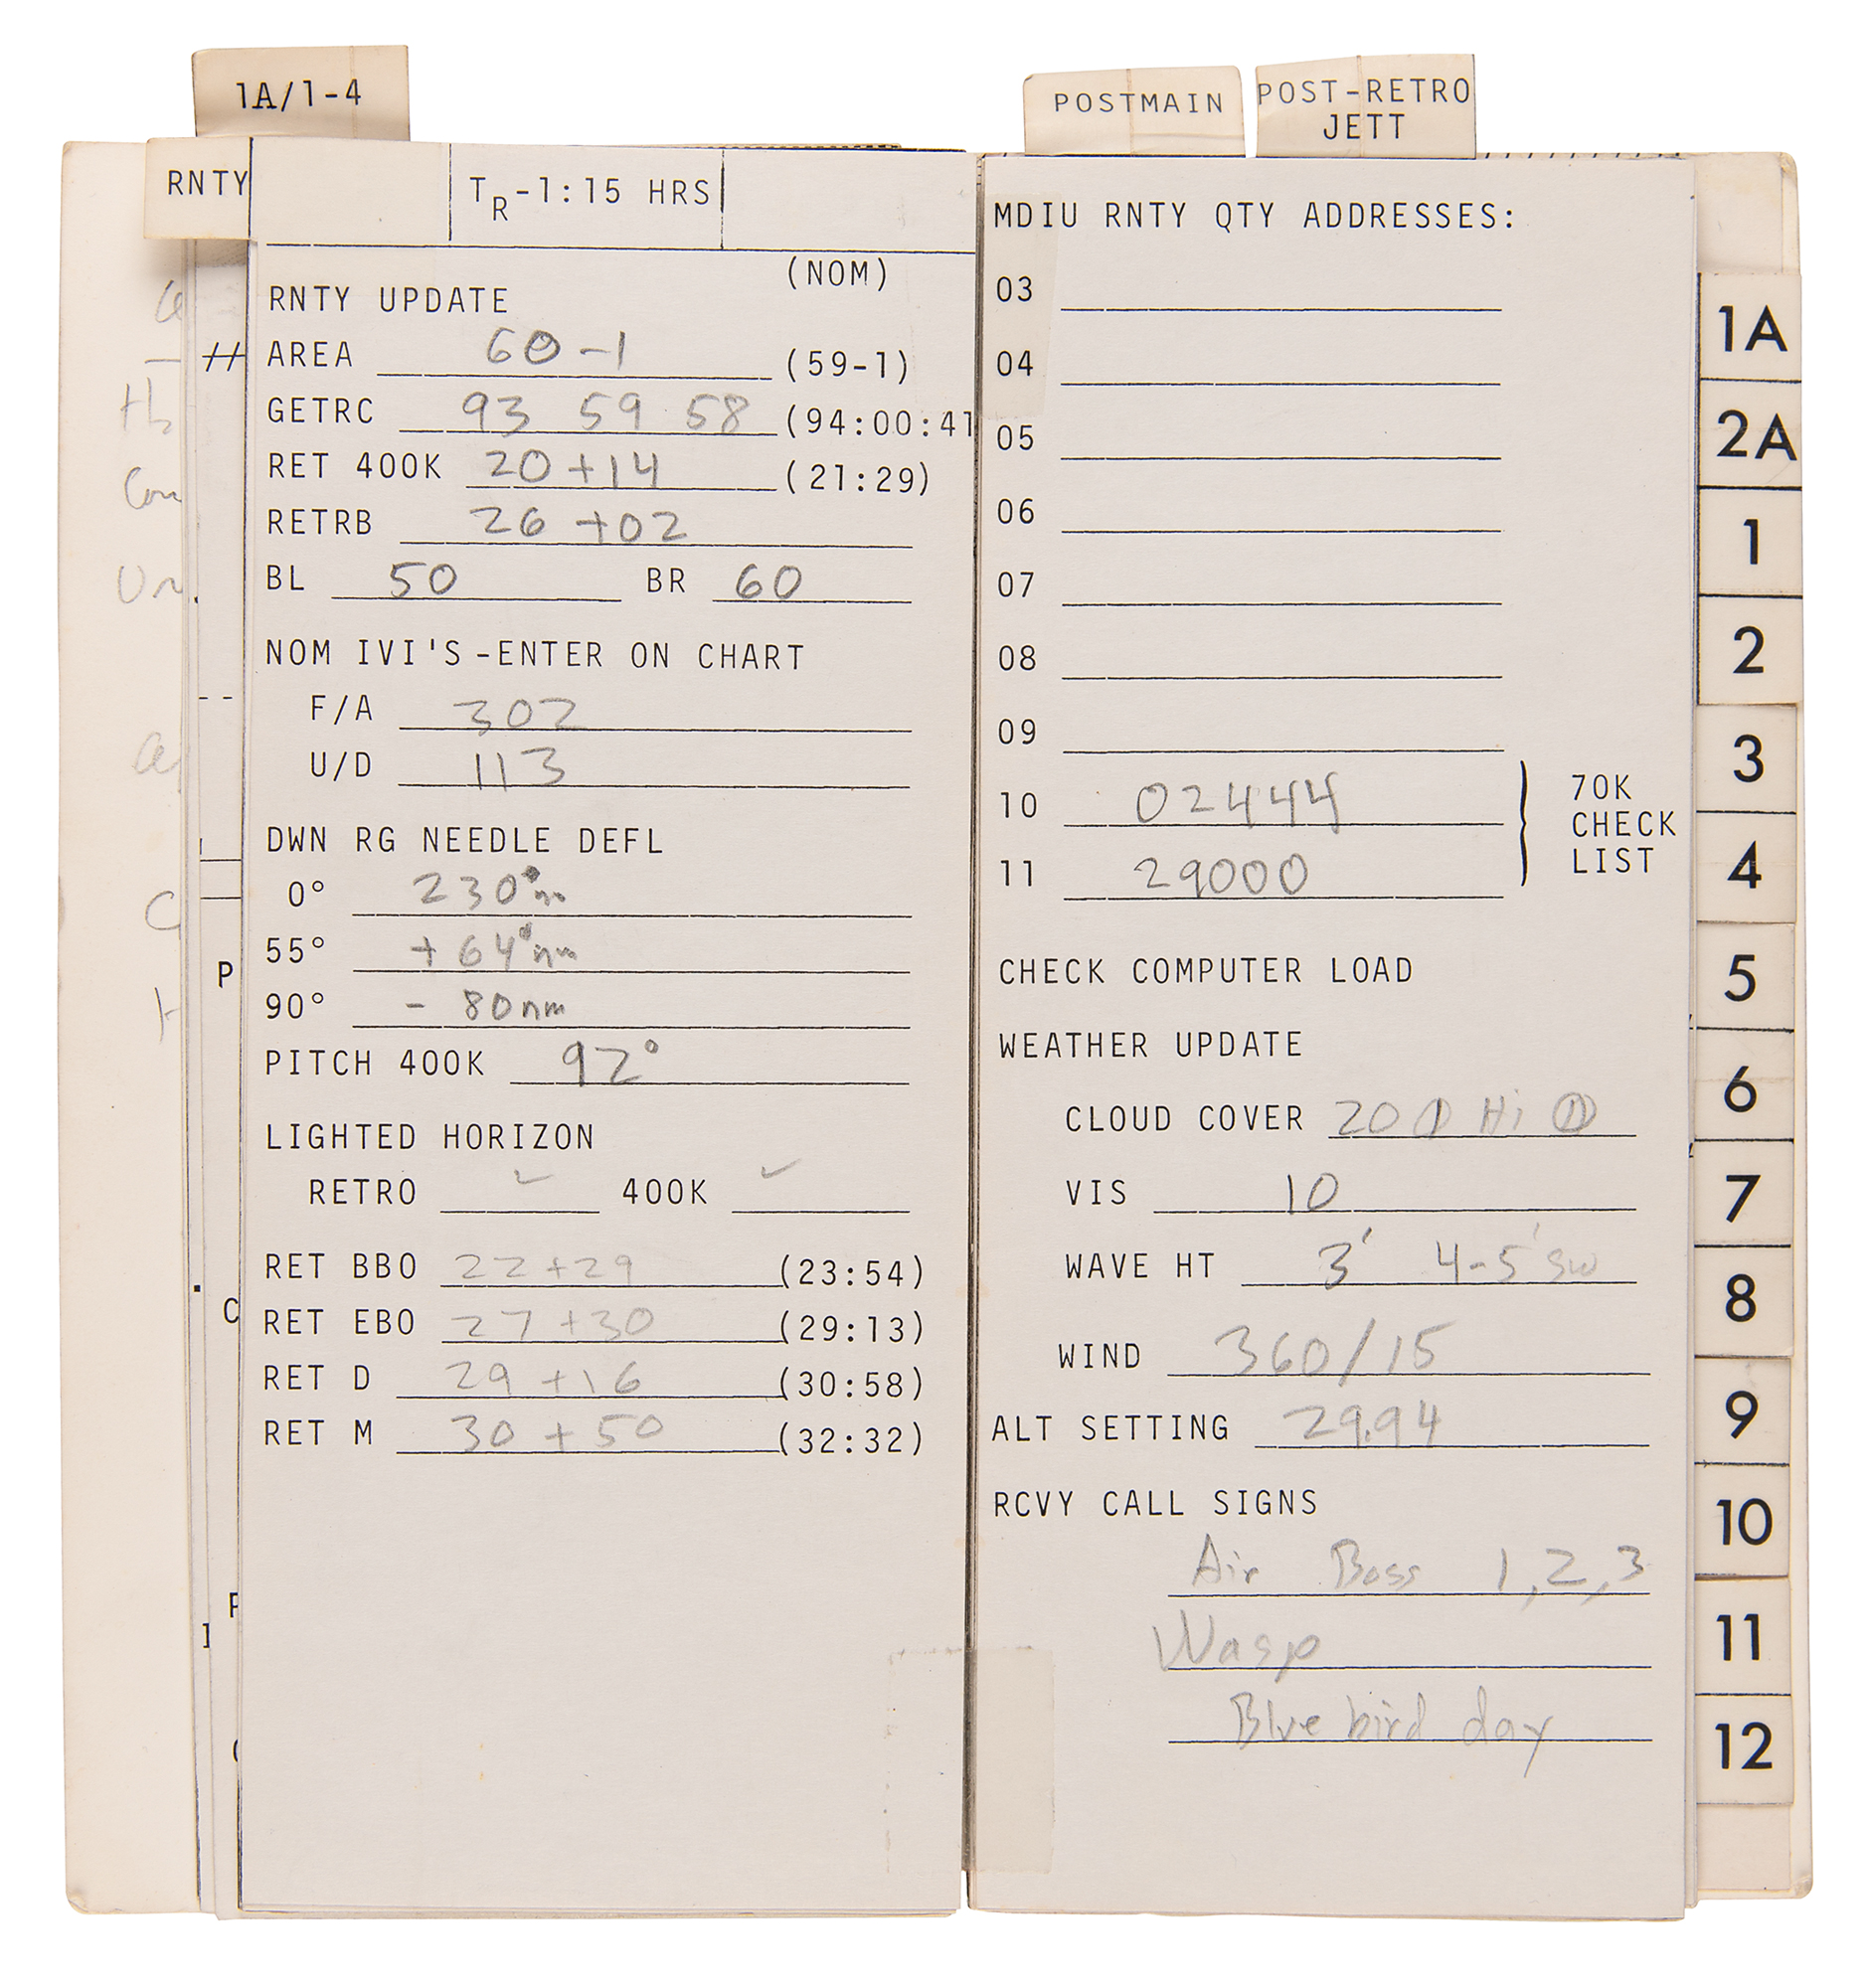 1A/1-4
POSTMAIN
POST-RETRO
JETT
RNTY
TR-1:15 HRS
(NOM)
RNTY UPDATE
AREA 60-1 (59-1)
GETRC 93 59 58 (94:00:41
RET 400K 20+14 (21:29)
RETRB 26 +02
BL 50 BR 60
NOM IVI'S-ENTER ON CHART
F/A 302
U/D 113
DWN RG NEEDLE DEFL
0° 230 nm
55° + 64 nm
90° - 80nm
PITCH 400K 92°
LIGHTED HORIZON
RETRO ✓ 400K ✓
RET BBO 22+29 (23:54)
RET EBO 27+30 (29:13)
RET D 29+16 (30:58)
RET M 30+50 (32:32)
MDIU RNTY QTY ADDRESSES:
03
04
05
06
07
08
09
10 02444
11 29000
70K
CHECK
LIST
CHECK COMPUTER LOAD
WEATHER UPDATE
CLOUD COVER 20 Hi
VIS 10
WAVE HT 3' 4-5' sw
WIND 360/15
ALT SETTING 29.94
RCVY CALL SIGNS
Air Boss 1,2,3
Wasp
Blue bird day
1A
2A
1
2
3
4
5
6
7
8
9
10
11
12